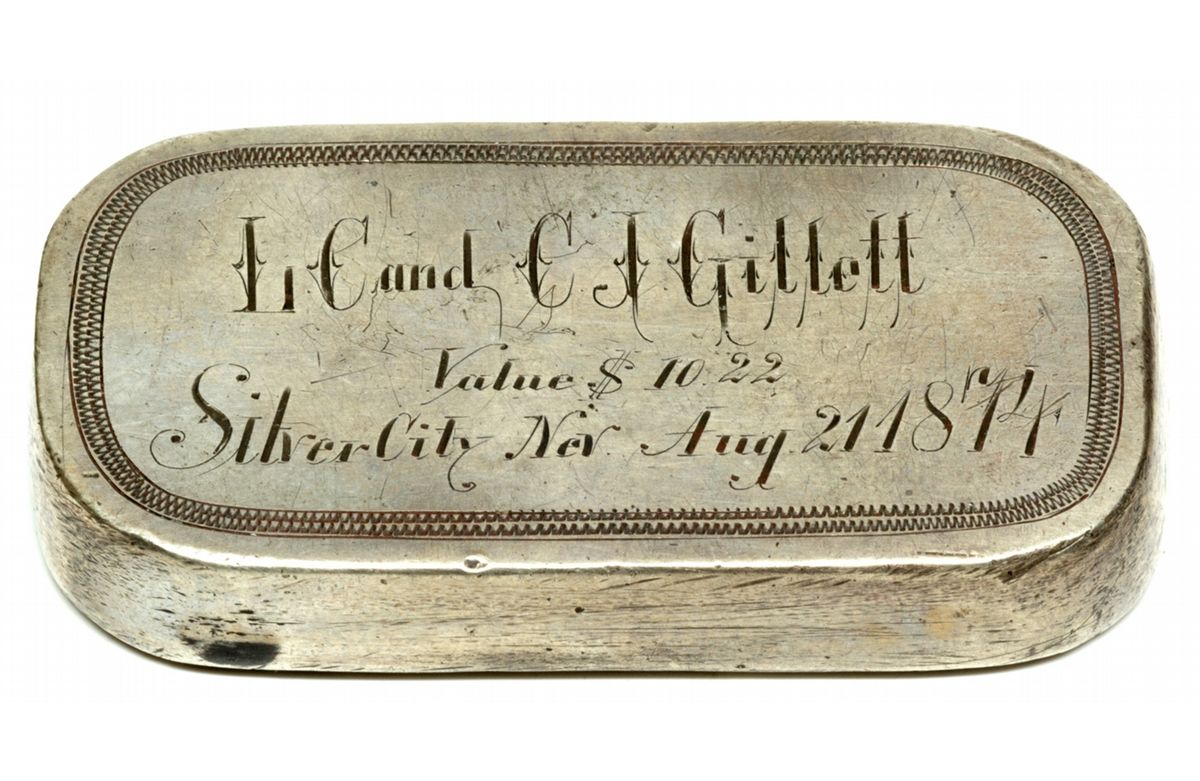 L C and C J Gillett
Value $ 10.22
Silver City Nev. Aug. 21 1874